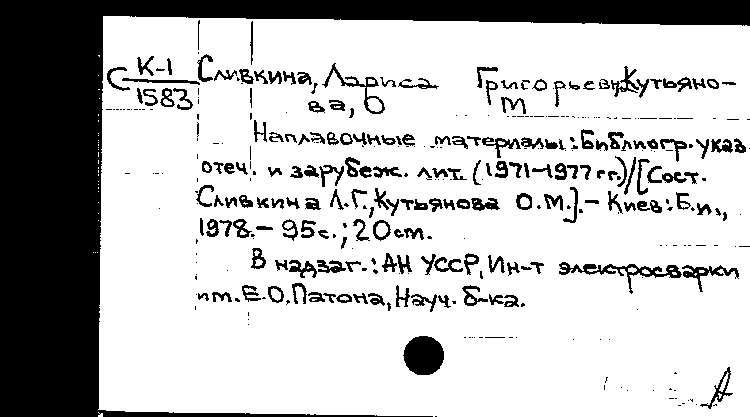 С К-1 Сливкина, Лариса Григорьевна, Кутьяно-
1583 ва, О М
Наплавочные материалы: Библиогр. указ.
отеч. и зарубеж. лит. (1971-1977 гг.)/[Сост.
Сливкина Л.Г., Кутьянова О.М.].- Киев: Б.и.,
1978.- 95с.; 20 cm.
В надзаг.: АН УССР, Ин-т электросварки
им. Е.О. Патона, Науч. б-ка.